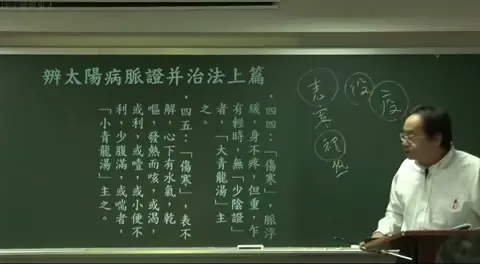 辨太陽病脈證并治法上篇
。四四:「傷寒」,脈浮
緩,身不疼,但重,乍
有輕時,無「少陰證」
者,「大青龍湯」主
之。
。四五:「傷寒」,表不
解,心下有水氣,乾
嘔,發熱而咳,或渴,
或利,或噎,或小便不
利,少腹滿,或喘者,
「小青龍湯」主之。
表寒裡熱